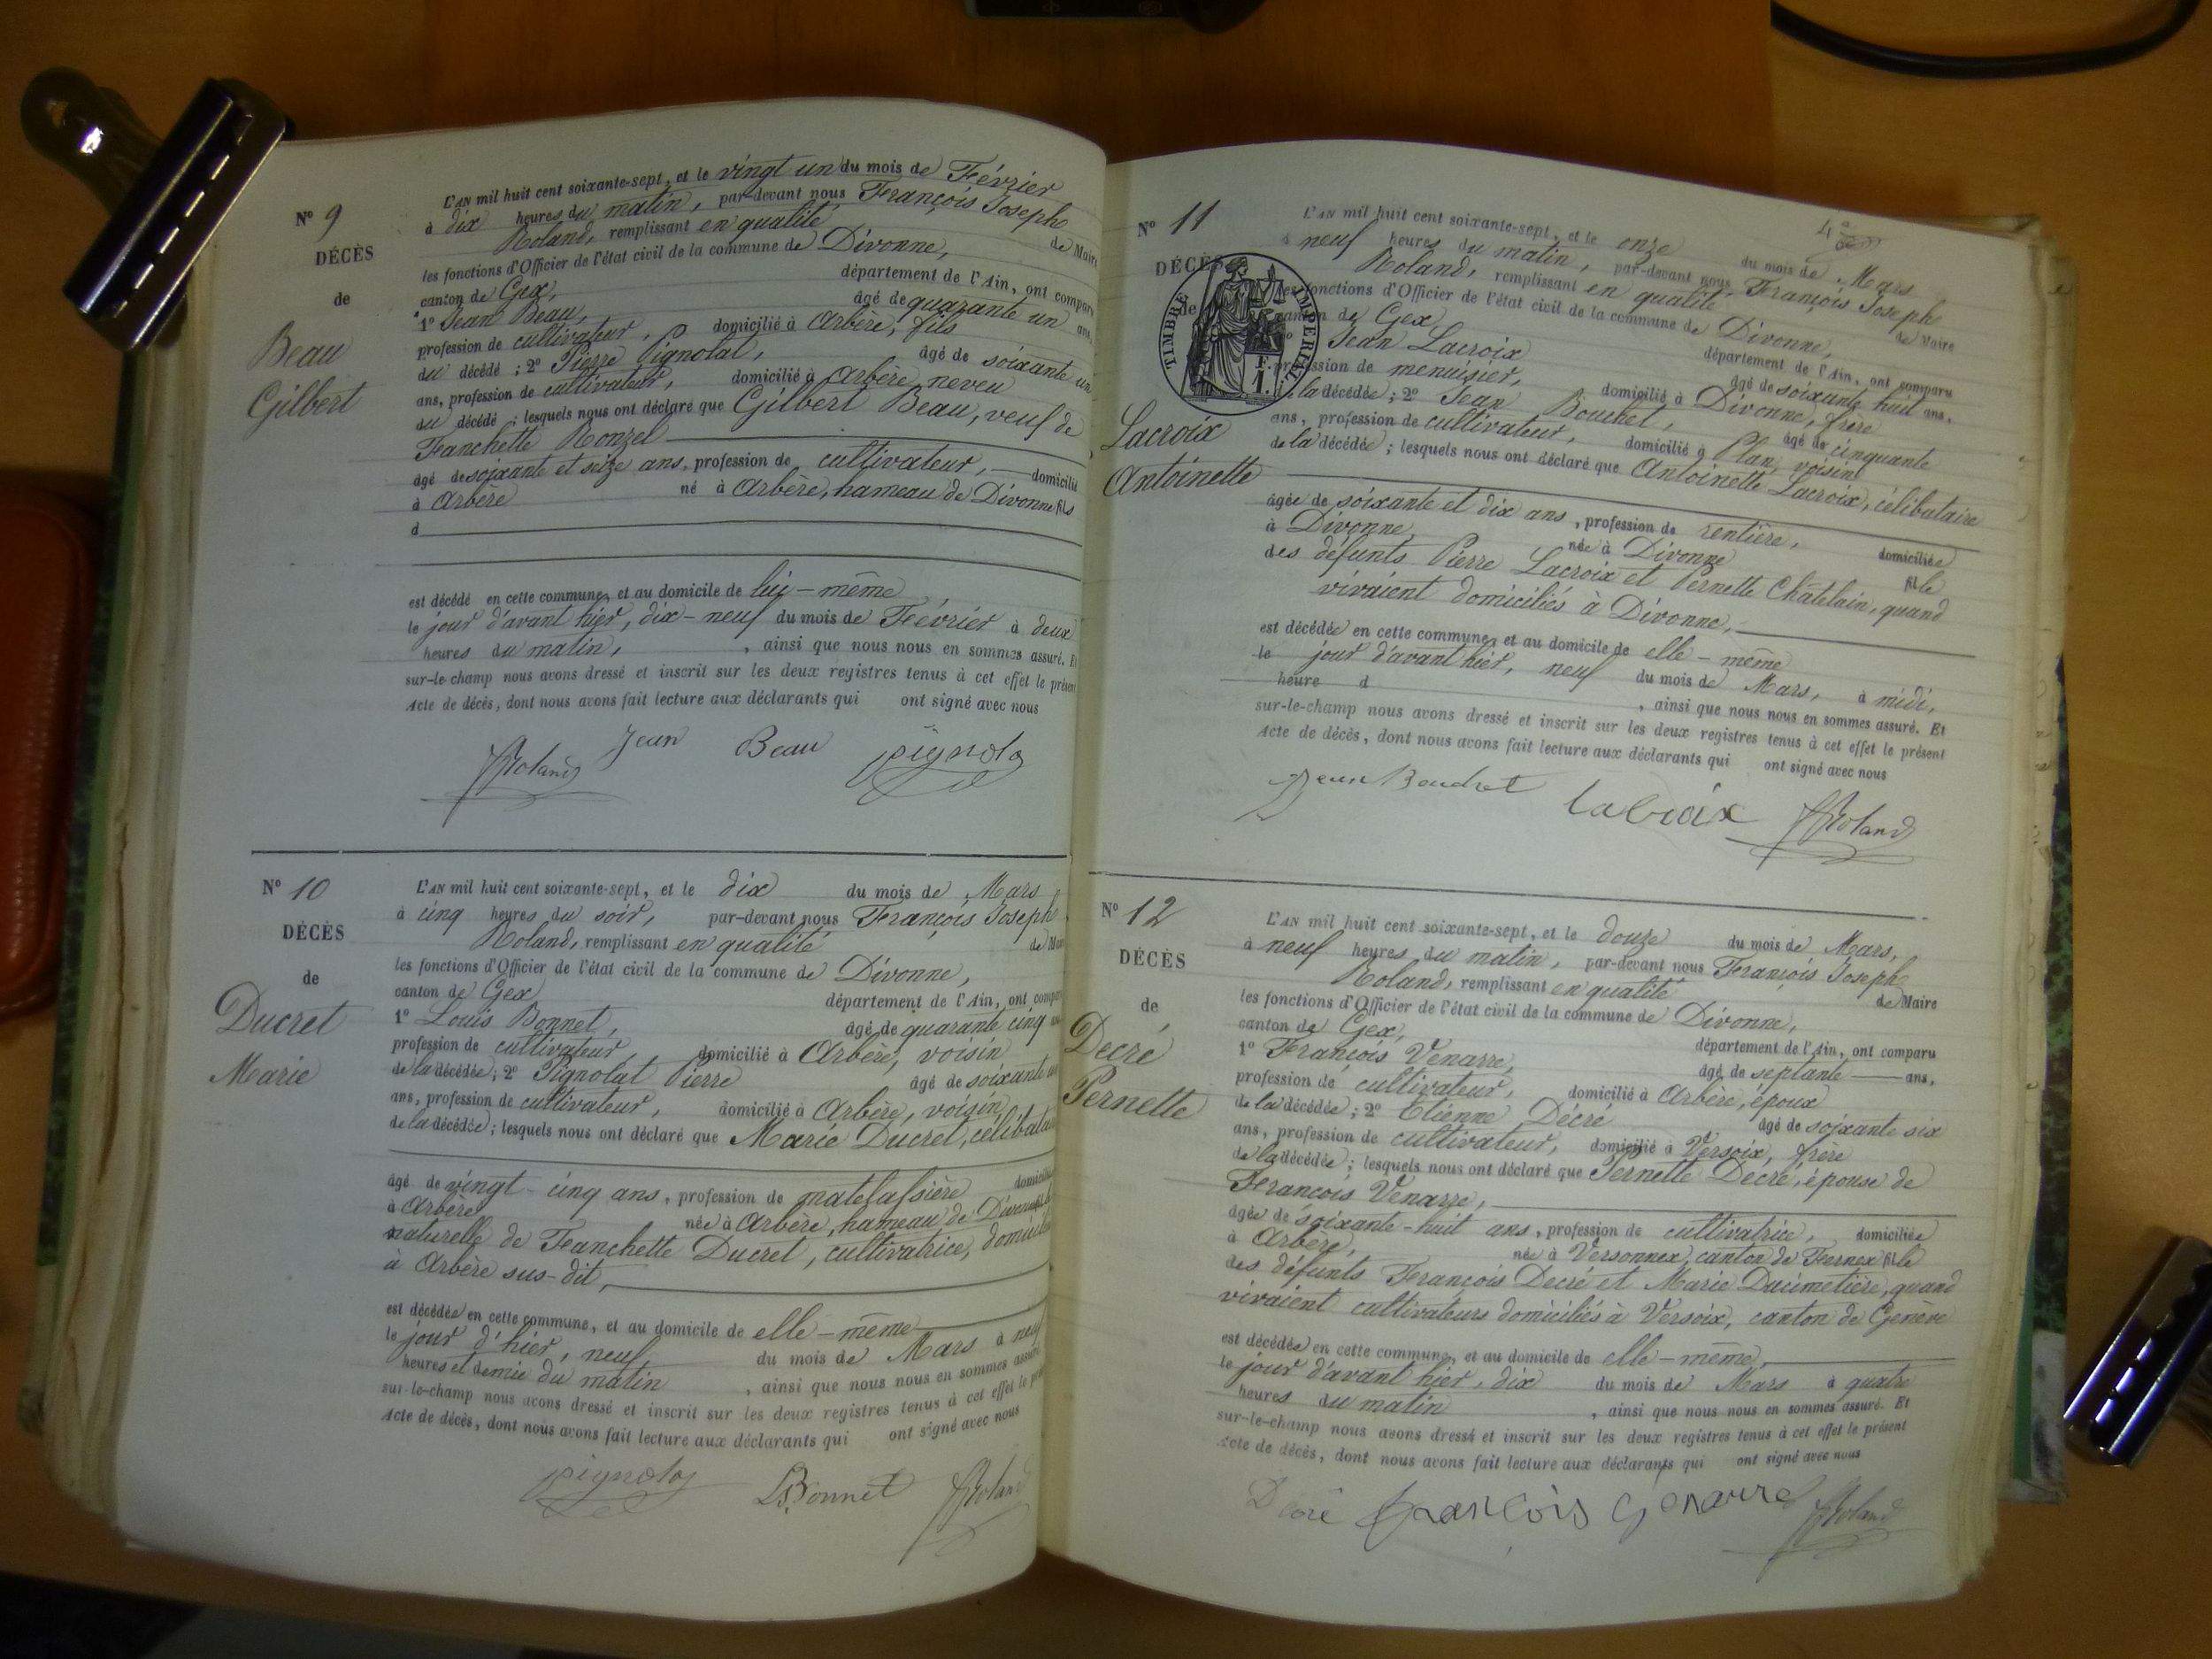 N° 9
DÉCÈS
de
Beau
Gilbert
L'AN mil huit cent soixante-sept, et le vingt un du mois de Février
à dix heures du matin, par-devant nous François Joseph
Roland, remplissant en qualité de Maire
les fonctions d'Officier de l'état civil de la commune de Divonne,
canton de Gex, département de l'Ain, ont compar
1° Jean Beau, âgé de quarante un ans
profession de cultivateur, domicilié à Arbère, fils
du décédé ; 2° Pierre Pignolat, âgé de soixante un
ans, profession de cultivateur, domicilié à Arbère neveu
du décédé ; lesquels nous ont déclaré que Gilbert Beau, veuf de
Fanchette Ronzel
âgé de soixante et seize ans, profession de cultivateur, domicilié
à Arbère né à Arbère, hameau de Divonne fils
d
est décédé en cette commune, et au domicile de lui-même
le jour d'avant hier, dix-neuf du mois de Février à deux
heures du matin, , ainsi que nous nous en sommes assuré. Et
sur-le-champ nous avons dressé et inscrit sur les deux registres tenus à cet effet le présent
Acte de décès, dont nous avons fait lecture aux déclarants qui ont signé avec nous
JRoland Jean Beau pignola
N° 10
DÉCÈS
de
Ducret
Marie
L'AN mil huit cent soixante-sept, et le dix du mois de Mars
à cinq heures du soir, par-devant nous François Joseph
Roland, remplissant en qualité de Mai
les fonctions d'Officier de l'état civil de la commune de Divonne,
canton de Gex département de l'Ain, ont compar
1° Louis Bonnet, âgé de quarante cinq ans
profession de cultivateur, domicilié à Arbère, voisin
de la décédée ; 2° Pignolat Pierre âgé de soixante un
ans, profession de cultivateur, domicilié à Arbère, voisin
de la décédée ; lesquels nous ont déclaré que Marie Ducret, célibataire
âgé de vingt-cinq ans, profession de matelassière domicilié
à Arbère née à Arbère, hameau de Divonne fille
naturelle de Fanchette Ducret, cultivatrice, domiciliée
à Arbère sus-dit,
est décédée en cette commune, et au domicile de elle-même
le jour d'hier, neuf, du mois de Mars à neuf
heures et demie du matin , ainsi que nous nous en sommes assuré
sur-le-champ nous avons dressé et inscrit sur les deux registres tenus à cet effet le pré
Acte de décès, dont nous avons fait lecture aux déclarants qui ont signé avec nous
pignolas Ls Bonnet JRoland
N° 11
DÉCÈS
de
Lacroix
Antoinette
TIMBRE IMPERIAL
F.
1.
L'AN mil huit cent soixante-sept, et le onze du mois de Mars
à neuf heures du matin, par-devant nous François Joseph
Roland, remplissant en qualité de Maire
les fonctions d'Officier de l'état civil de la commune de Divonne,
canton de Gex département de l'Ain, ont comparu
1° Jean Lacroix âgé de soixante huit ans,
profession de menuisier, domicilié à Divonne, frère
de la décédée ; 2° Jean Bouchet, âgé de cinquante
ans, profession de cultivateur, domicilié à Plan, voisin
de la décédée ; lesquels nous ont déclaré que Antoinette Lacroix, célibataire
âgée de soixante et dix ans, profession de rentière, domiciliée
à Divonne née à Divonne fille
des défunts Pierre Lacroix et Pernette Châtelain, quand
vivaient domiciliés à Divonne,
est décédée en cette commune, et au domicile de elle-même
le jour d'avant hier, neuf du mois de Mars, à midi,
heure d , ainsi que nous nous en sommes assuré. Et
sur-le-champ nous avons dressé et inscrit sur les deux registres tenus à cet effet le présent
Acte de décès, dont nous avons fait lecture aux déclarants qui ont signé avec nous
Jean Bouchet lacroix JRoland
N° 12
DÉCÈS
de
Decré
Pernette
L'AN mil huit cent soixante-sept, et le douze du mois de Mars,
à neuf heures du matin, par-devant nous François Joseph
Roland, remplissant en qualité de Maire
les fonctions d'Officier de l'état civil de la commune de Divonne,
canton de Gex, département de l'Ain, ont comparu
1° François Venarre, âgé de septante ans,
profession de cultivateur, domicilié à Arbère, époux
de la décédée ; 2° Etienne Décré âgé de soixante six
ans, profession de cultivateur, domicilié à Versoix, frère
de la décédée ; lesquels nous ont déclaré que Pernette Decré, épouse de
François Venarre,
âgée de soixante-huit ans, profession de cultivatrice, domiciliée
à Arbère, née à Versonnex, canton de Fernex fille
des défunts François Decré et Marie Ducimetière, quand
vivaient cultivateurs domiciliés à Versoix, canton de Genève
est décédée en cette commune, et au domicile de elle-même,
le jour d'avant hier, dix du mois de Mars à quatre
heures du matin , ainsi que nous nous en sommes assuré. Et
sur-le-champ nous avons dressé et inscrit sur les deux registres tenus à cet effet le présent
Acte de décès, dont nous avons fait lecture aux déclarants qui ont signé avec nous
François Genarre JRoland